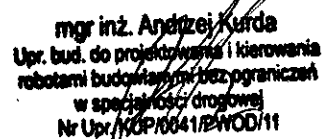 mgr inż. Andrzej Kurda
Upr. bud. do projektowania i kierowania
robotami budowlanymi bez ograniczeń
w specjalności drogowej
Nr Upr. KUP/0041/PWOD/11